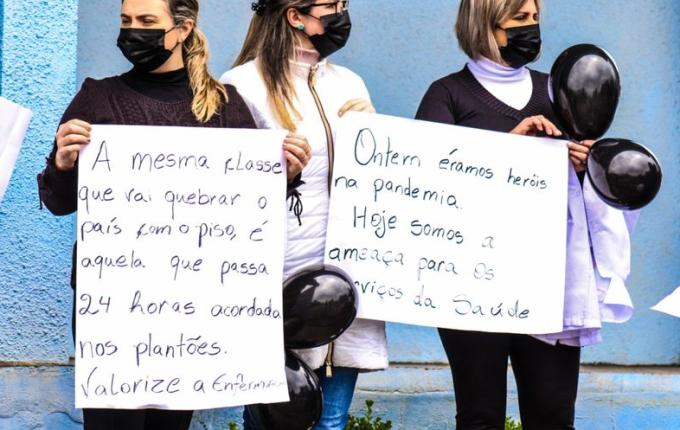 A mesma classe
que vai quebrar o
país com o piso, é
aquela que passa
24 horas acordada
nos plantões.
Valorize a
Ontem éramos heróis
na pandemia.
Hoje somos a
ameaça para os
da Saúde